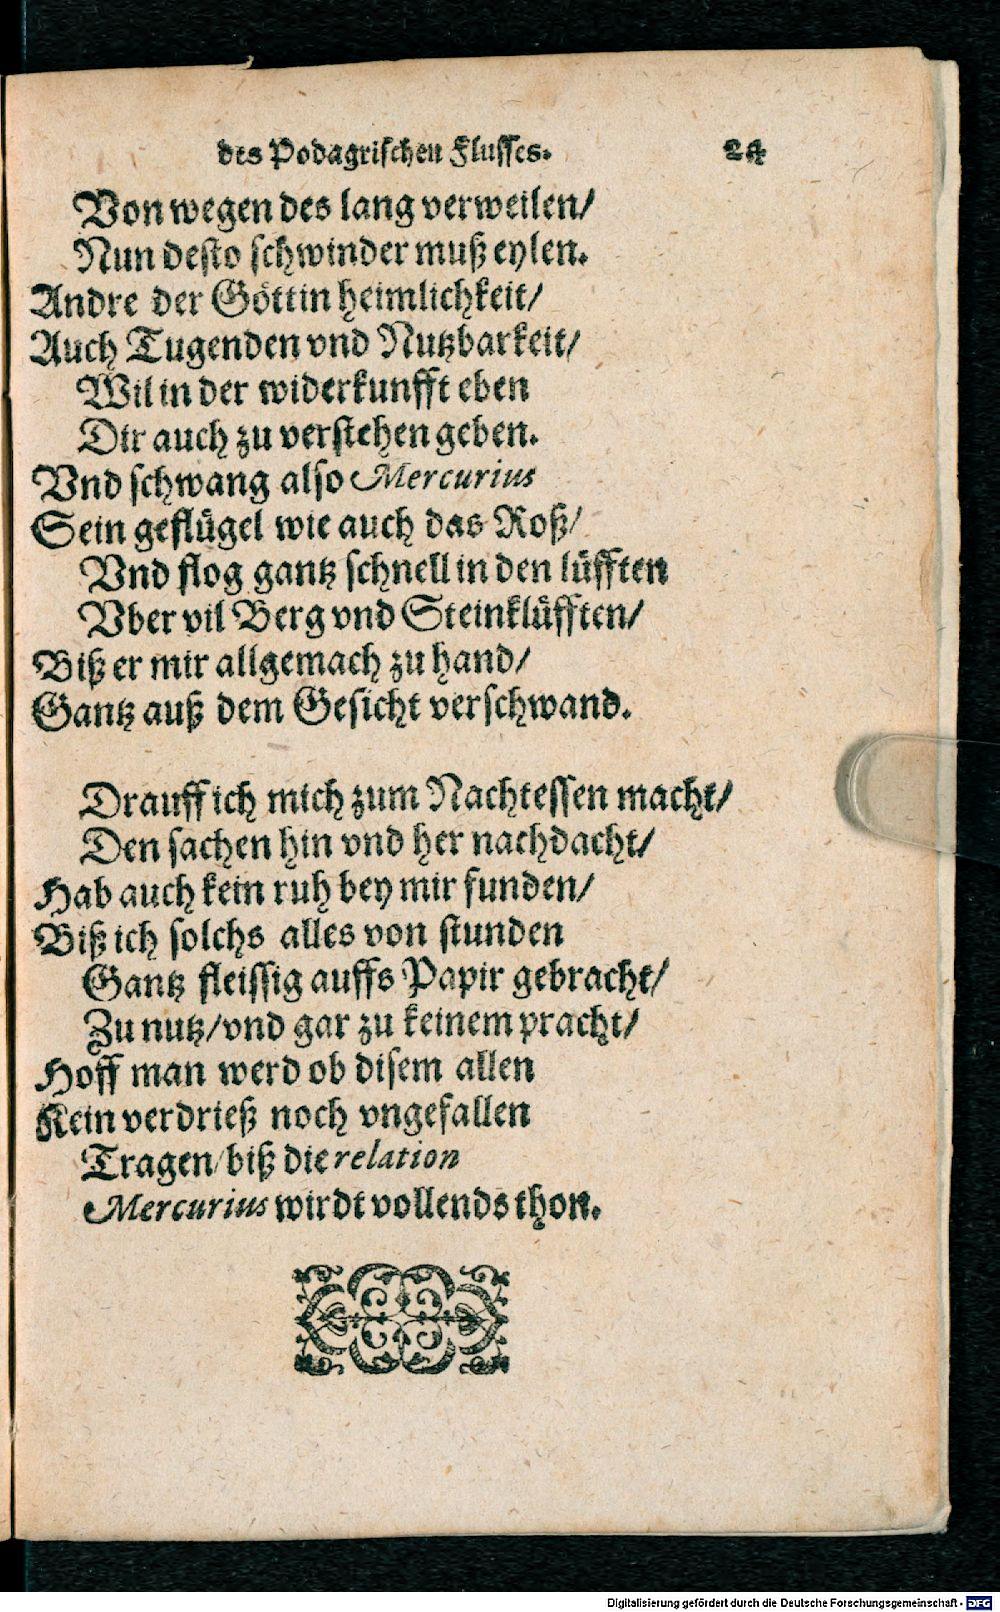 des Podagrischen Flusses. 24
Von wegen des lang verweilen/
Nun desto schwinder muß eylen.
Andre der Göttin heimlichkeit/
Auch Tugenden vnd Nutzbarkeit/
Wil in der widerkunfft eben
Dir auch zu verstehen geben.
Vnd schwang also Mercurius
Sein geflügel wie auch das Roß/
Vnd flog gantz schnell in den lüfften
Vber vil Berg vnd Steinklüfften/
Biß er mir allgemach zu hand/
Gantz auß dem Gesicht verschwand.
Drauff ich mich zum Nachtessen macht/
Den sachen hin vnd her nachdacht/
Hab auch kein ruh bey mir funden/
Biß ich solchs alles von stunden
Gantz fleissig auffs Papir gebracht/
Zu nutz/ vnd gar zu keinem pracht/
Hoff man werd ob disem allen
Kein verdrieß noch vngefallen
Tragen/ biß die relation
Mercurius wirdt vollends thon.
Digitalisierung gefördert durch die Deutsche Forschungsgemeinschaft - DFG